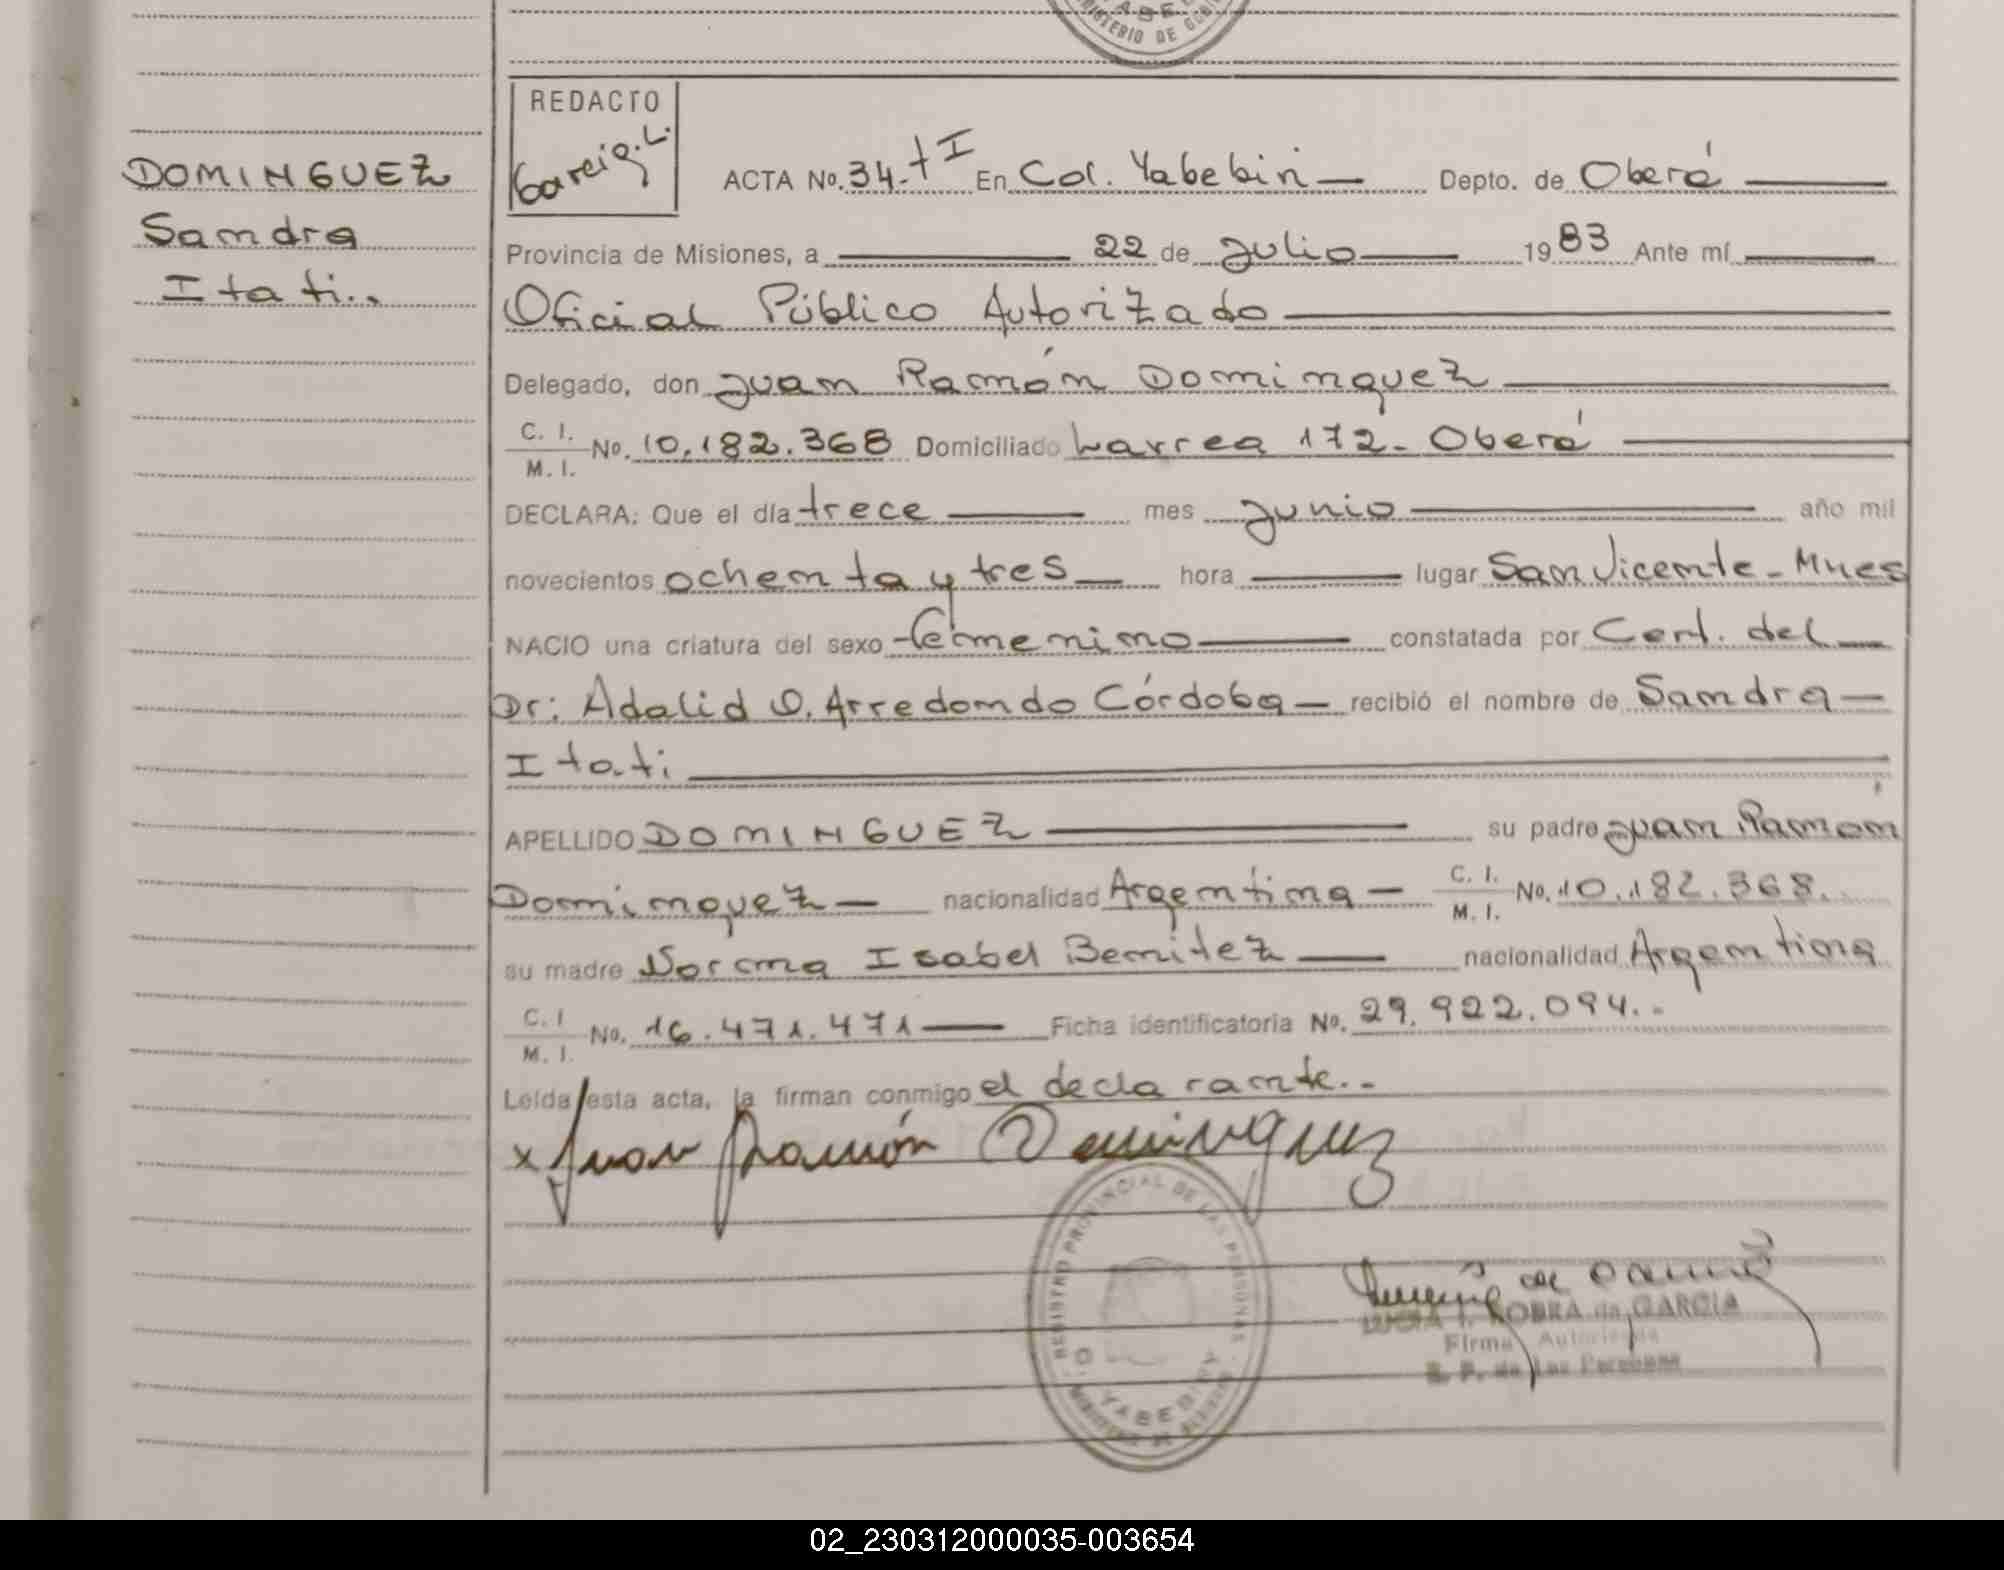 YABEB
MINISTERIO DE GOBI
REDACTO
Garcia L.
ACTA No. 34-tI En Col. Yabebiri Depto. de Oberá
DOMINGUEZ
Sandra
Itati..
Provincia de Misiones, a 22 de Julio 1983 Ante mí
Oficial Público Autorizado
Delegado, don Juan Ramón Dominguez
C. I.
M. I. No. 10.182.368 Domiciliado Larrea 172- Oberá
DECLARA: Que el día trece mes Junio año mil
novecientos ochenta y tres hora lugar San Vicente - Mnes
NACIO una criatura del sexo femenino constatada por Cert. del
Dr: Adalid O. Arredondo Córdoba recibió el nombre de Sandra
Itati
APELLIDO DOMINGUEZ su padre Juan Ramón
Dominguez nacionalidad Argentina C. I.
M. I. No. 10.182.368.
su madre Norma Isabel Benitez nacionalidad Argentina
C. I
M. I. No. 16.471.471 Ficha identificatoria No. 29.922.094..
Leída esta acta, la firman conmigo el declarante..
x Juan Ramón Dominguez
REGISTRO PROVINCIAL DE LAS PERSONAS
YABEBIRY
LUCIA I. KOBRA de GARCIA
Firma Autorizada
R. P. de Las Personas
02_230312000035-003654